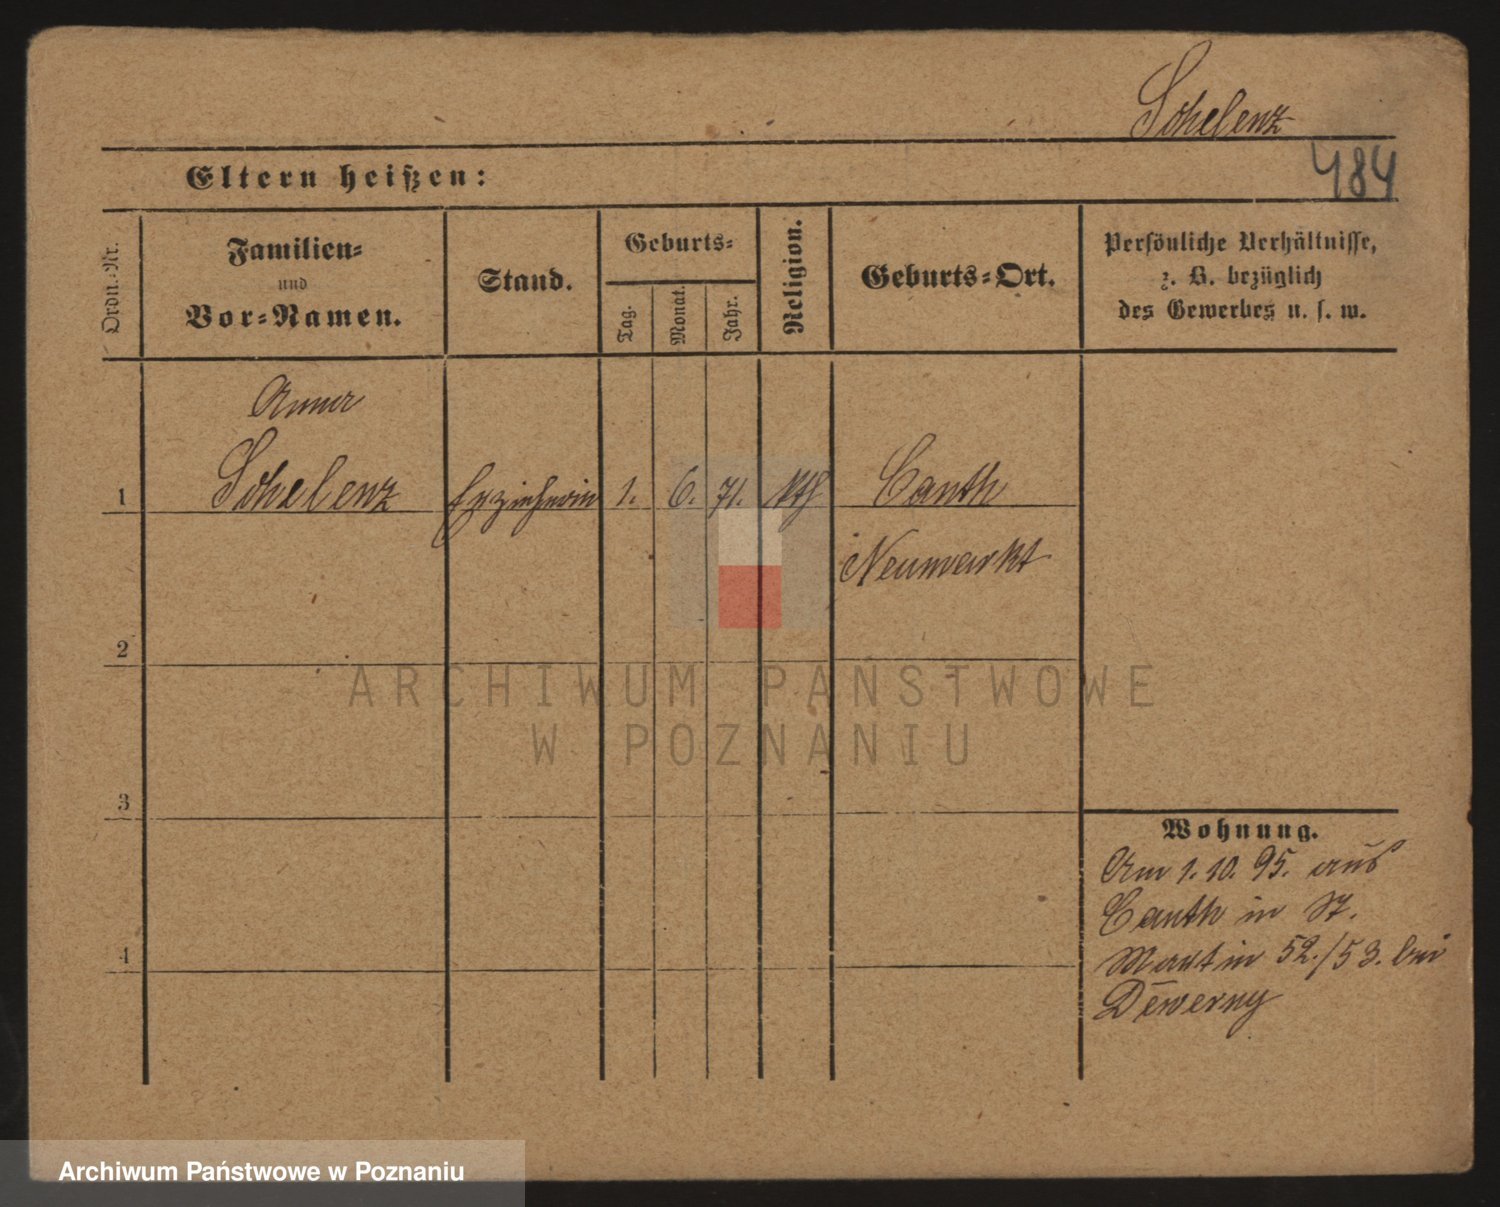 Schelenz
484
Eltern heißen:
Ordn.-Nr.
Familien-
und
Vor-Namen.
Stand.
Geburts-
Tag.
Monat.
Jahr.
Religion.
Geburts-Ort.
Persönliche Verhältnisse,
z. B. bezüglich
des Gewerbes u. s. w.
Anna
1 Schelenz Erzieherin 1. 6. 71. kth Canth
Neumarkt
2
3
4
Wohnung.
Am 1.10.95. aus
Canth in St.
Martin 52./53. bei
Dewerny
ARCHIWUM PAŃSTWOWE
W POZNANIU
Archiwum Państwowe w Poznaniu